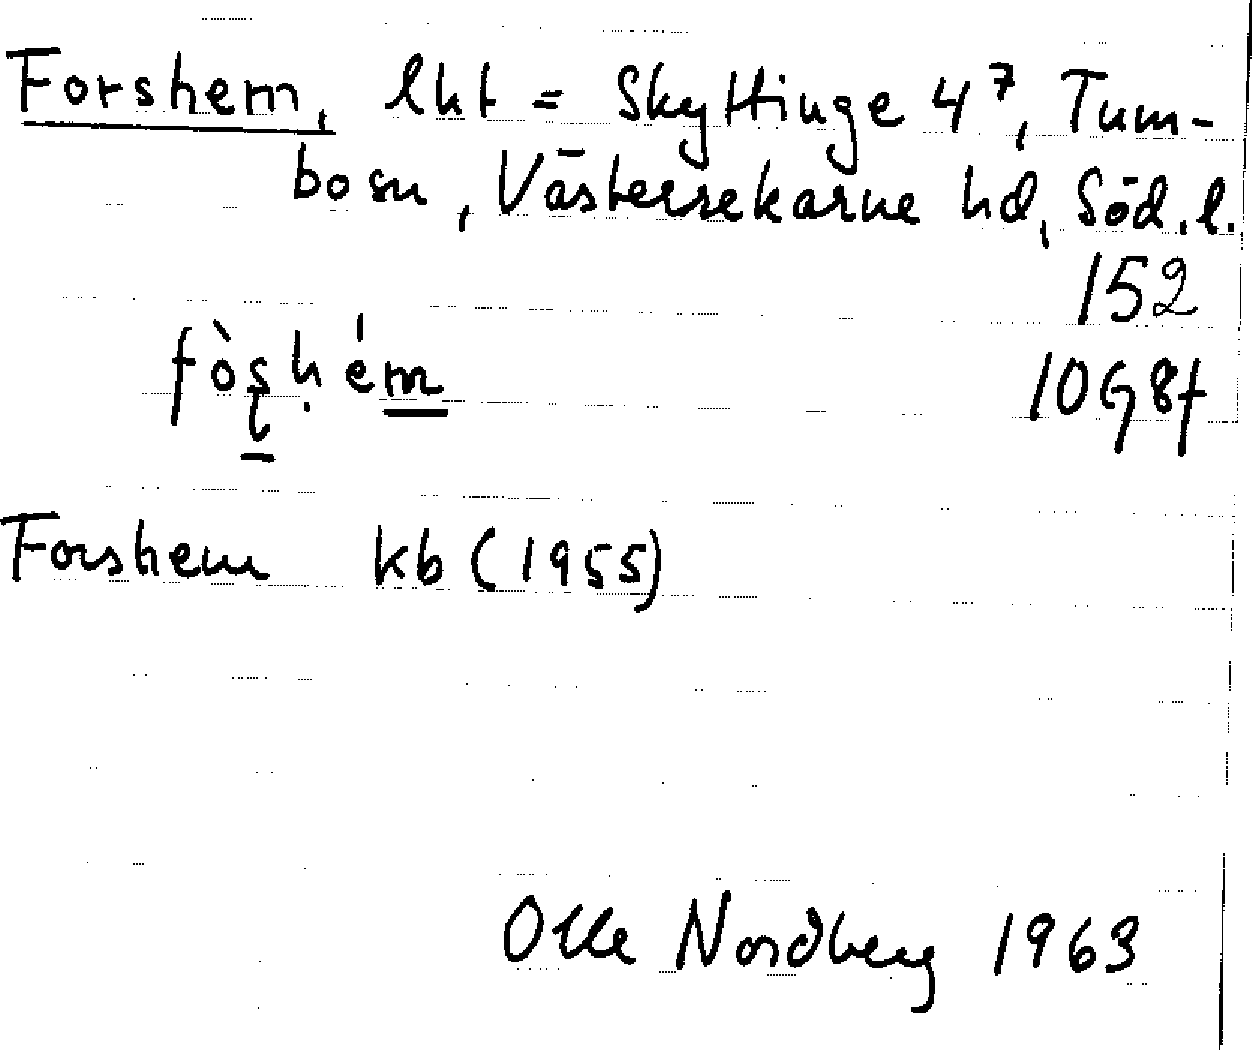 Forshem, lht = Skyttinge 4⁷, Tum-
bo sn, Västerrekarne hd, Söd. l.
152
10G8f
Forshem kb (1955)
Olle Nordberg 1963